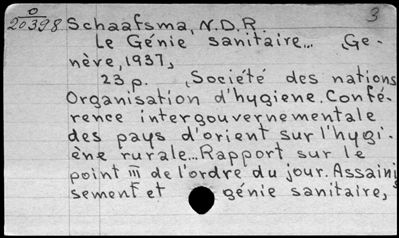 3
O
20398 Schaafsma, N.D.R
Le Génie sanitaire... Ge-
nève, 1937,
23 p. Société des nations
Organisation d'hygiene. Confé-
rence intergouvernementale
des pays d'orient sur l'hygi-
ène rurale... Rapport sur le
point III de l'ordre du jour. Assaini
sement et génie sanitaire,